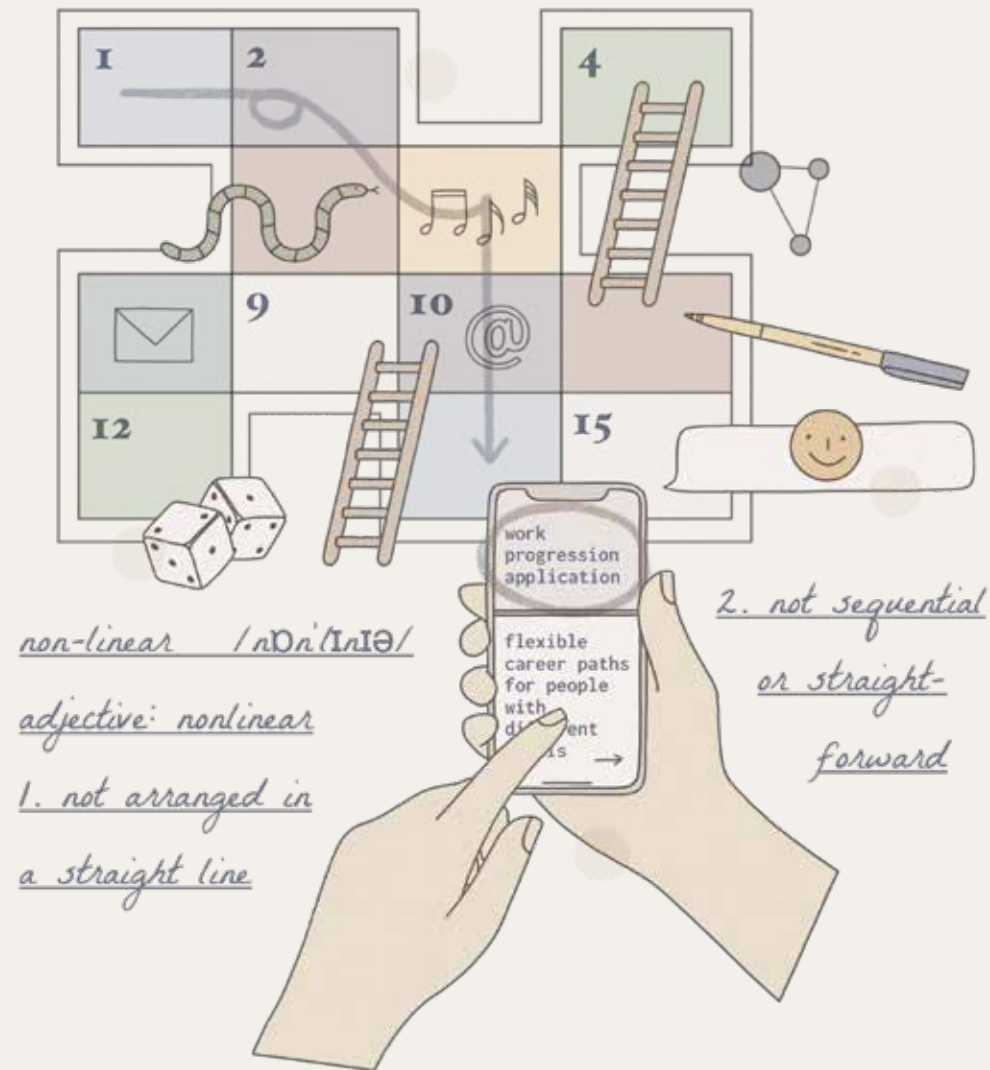 1
2
4
9
10
@
12
15
work
progression
application
flexible
career paths
for people
with
non-linear /nɒnˈlɪnɪə/
adjective: nonlinear
1. not arranged in
a straight line
2. not sequential
or straight-
forward